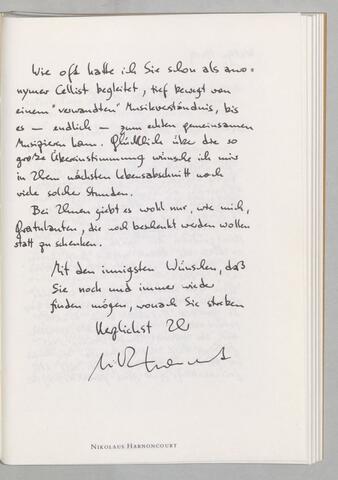 Wie oft hatte ich Sie schon als ano-
nymer Cellist begleitet, tief bewegt von
einem "verwandten" Musikverständnis, bis
es – endlich – zum echten gemeinsamen
Musizieren kam. Glücklich über die so
große Übereinstimmung wünsche ich mir
in Ihrem nächsten Lebensabschnitt noch
viele solcher Stunden.
Bei Ihnen giebt es wohl nur, wie mich,
Gratulanten, die noch beschenkt werden wollen
statt zu schenken.
Mit den innigsten Wünschen, daß
Sie noch und immer wieder
finden mögen, wonach Sie streben
Herzlichst Ihr
NIKOLAUS HARNONCOURT